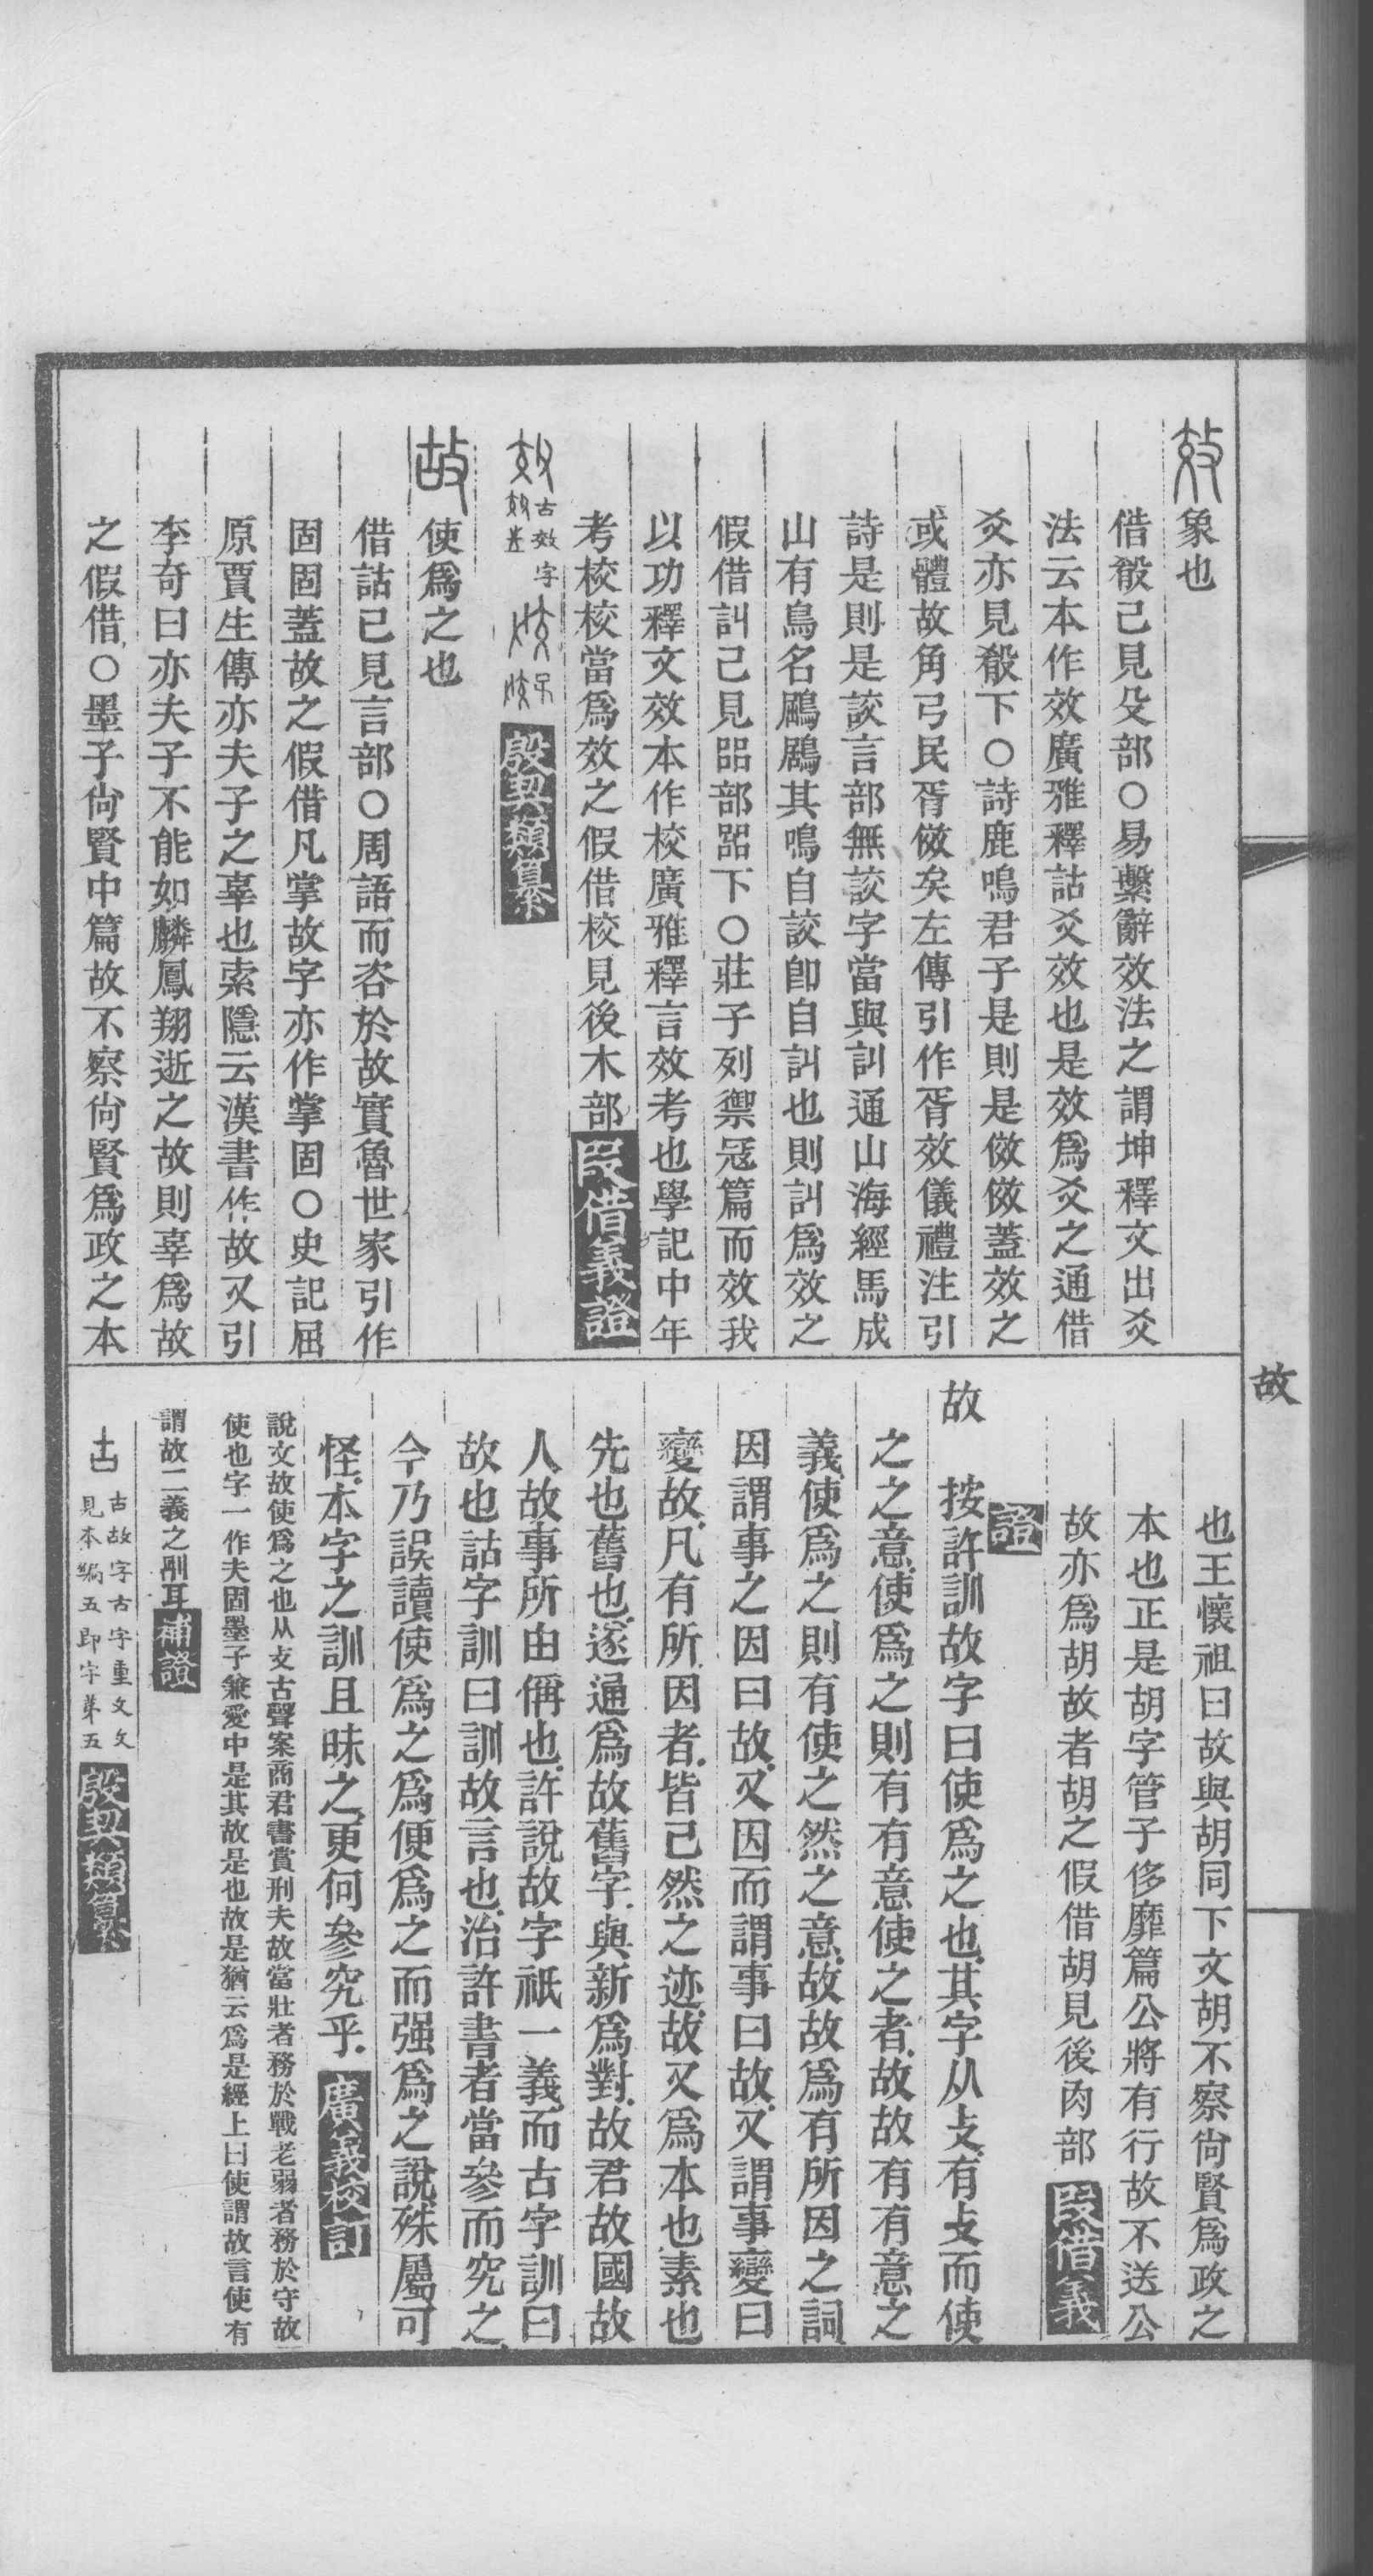 效象也
借殽己見殳部○易繫辭效法之謂坤釋文出爻
法云本作效廣雅釋詁爻效也是效爲爻之通借
爻亦見殽下○詩鹿鳴君子是則是傚傚蓋效之
或體故角弓民胥傚矣左傳引作胥效儀禮注引
詩是則是詨言部無詨字當與訆通山海經馬成
山有鳥名鶌鶋其鳴自詨卽自訆也則訆爲效之
假借訆己見㗊部㗊下○莊子列禦寇篇而效我
以功釋文效本作校廣雅釋言效考也學記中年
考校校當爲效之假借校見後木部叚借義證
古效字
殷契類纂
故使爲之也
借詁已見言部○周語而咨於故實魯世家引作
固固蓋故之假借凡掌故字亦作掌固○史記屈
原賈生傳亦夫子之辜也索隱云漢書作故又引
李奇曰亦夫子不能如麟鳳翔逝之故則辜爲故
之假借○墨子尙賢中篇故不察尙賢爲政之本
故
也王懷祖曰故與胡同下文胡不察尙賢爲政之
本也正是胡字管子侈靡篇公將有行故不送公
故亦爲胡故者胡之假借胡見後肉部叚借義
證
故　按許訓故字曰使爲之也其字从攴有攴而使
之之意使爲之則有有意使之者故故有有意之
義使爲之則有使之然之意故故爲有所因之詞
因謂事之因曰故又因而謂事曰故又謂事變曰
變故凡有所因者皆己然之迹故又爲本也素也
先也舊也遂通爲故舊字與新爲對故君故國故
人故事所由偁也許說故字祇一義而古字訓曰
故也詁字訓曰訓故言也治許書者當參而究之
今乃誤讀使爲之爲便爲之而强爲之說殊屬可
怪本字之訓且昧之更何參究乎廣義校訂
說文故使爲之也从攴古聲案商君書賞刑夫故當壯者務於戰老弱者務於守故
使也字一作夫固墨子兼愛中是其故是也故是猶云爲是經上曰使謂故言使有
謂故二義之剛耳補證
古故字古字重文文
見本編五卽字弟五殷契類纂